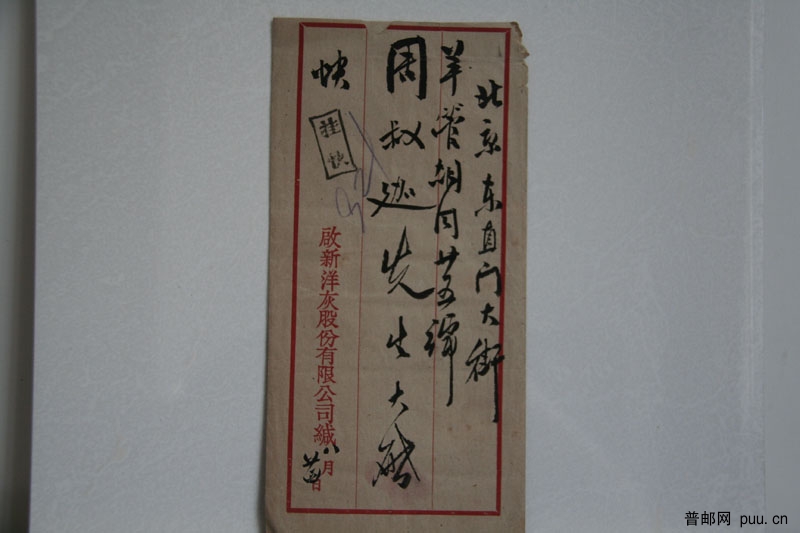 北京东直门大街
羊管胡同廿五号
周叔迦先生大启
快
挂
快
啟新洋灰股份有限公司緘
八月
日
普邮网 puu.cn